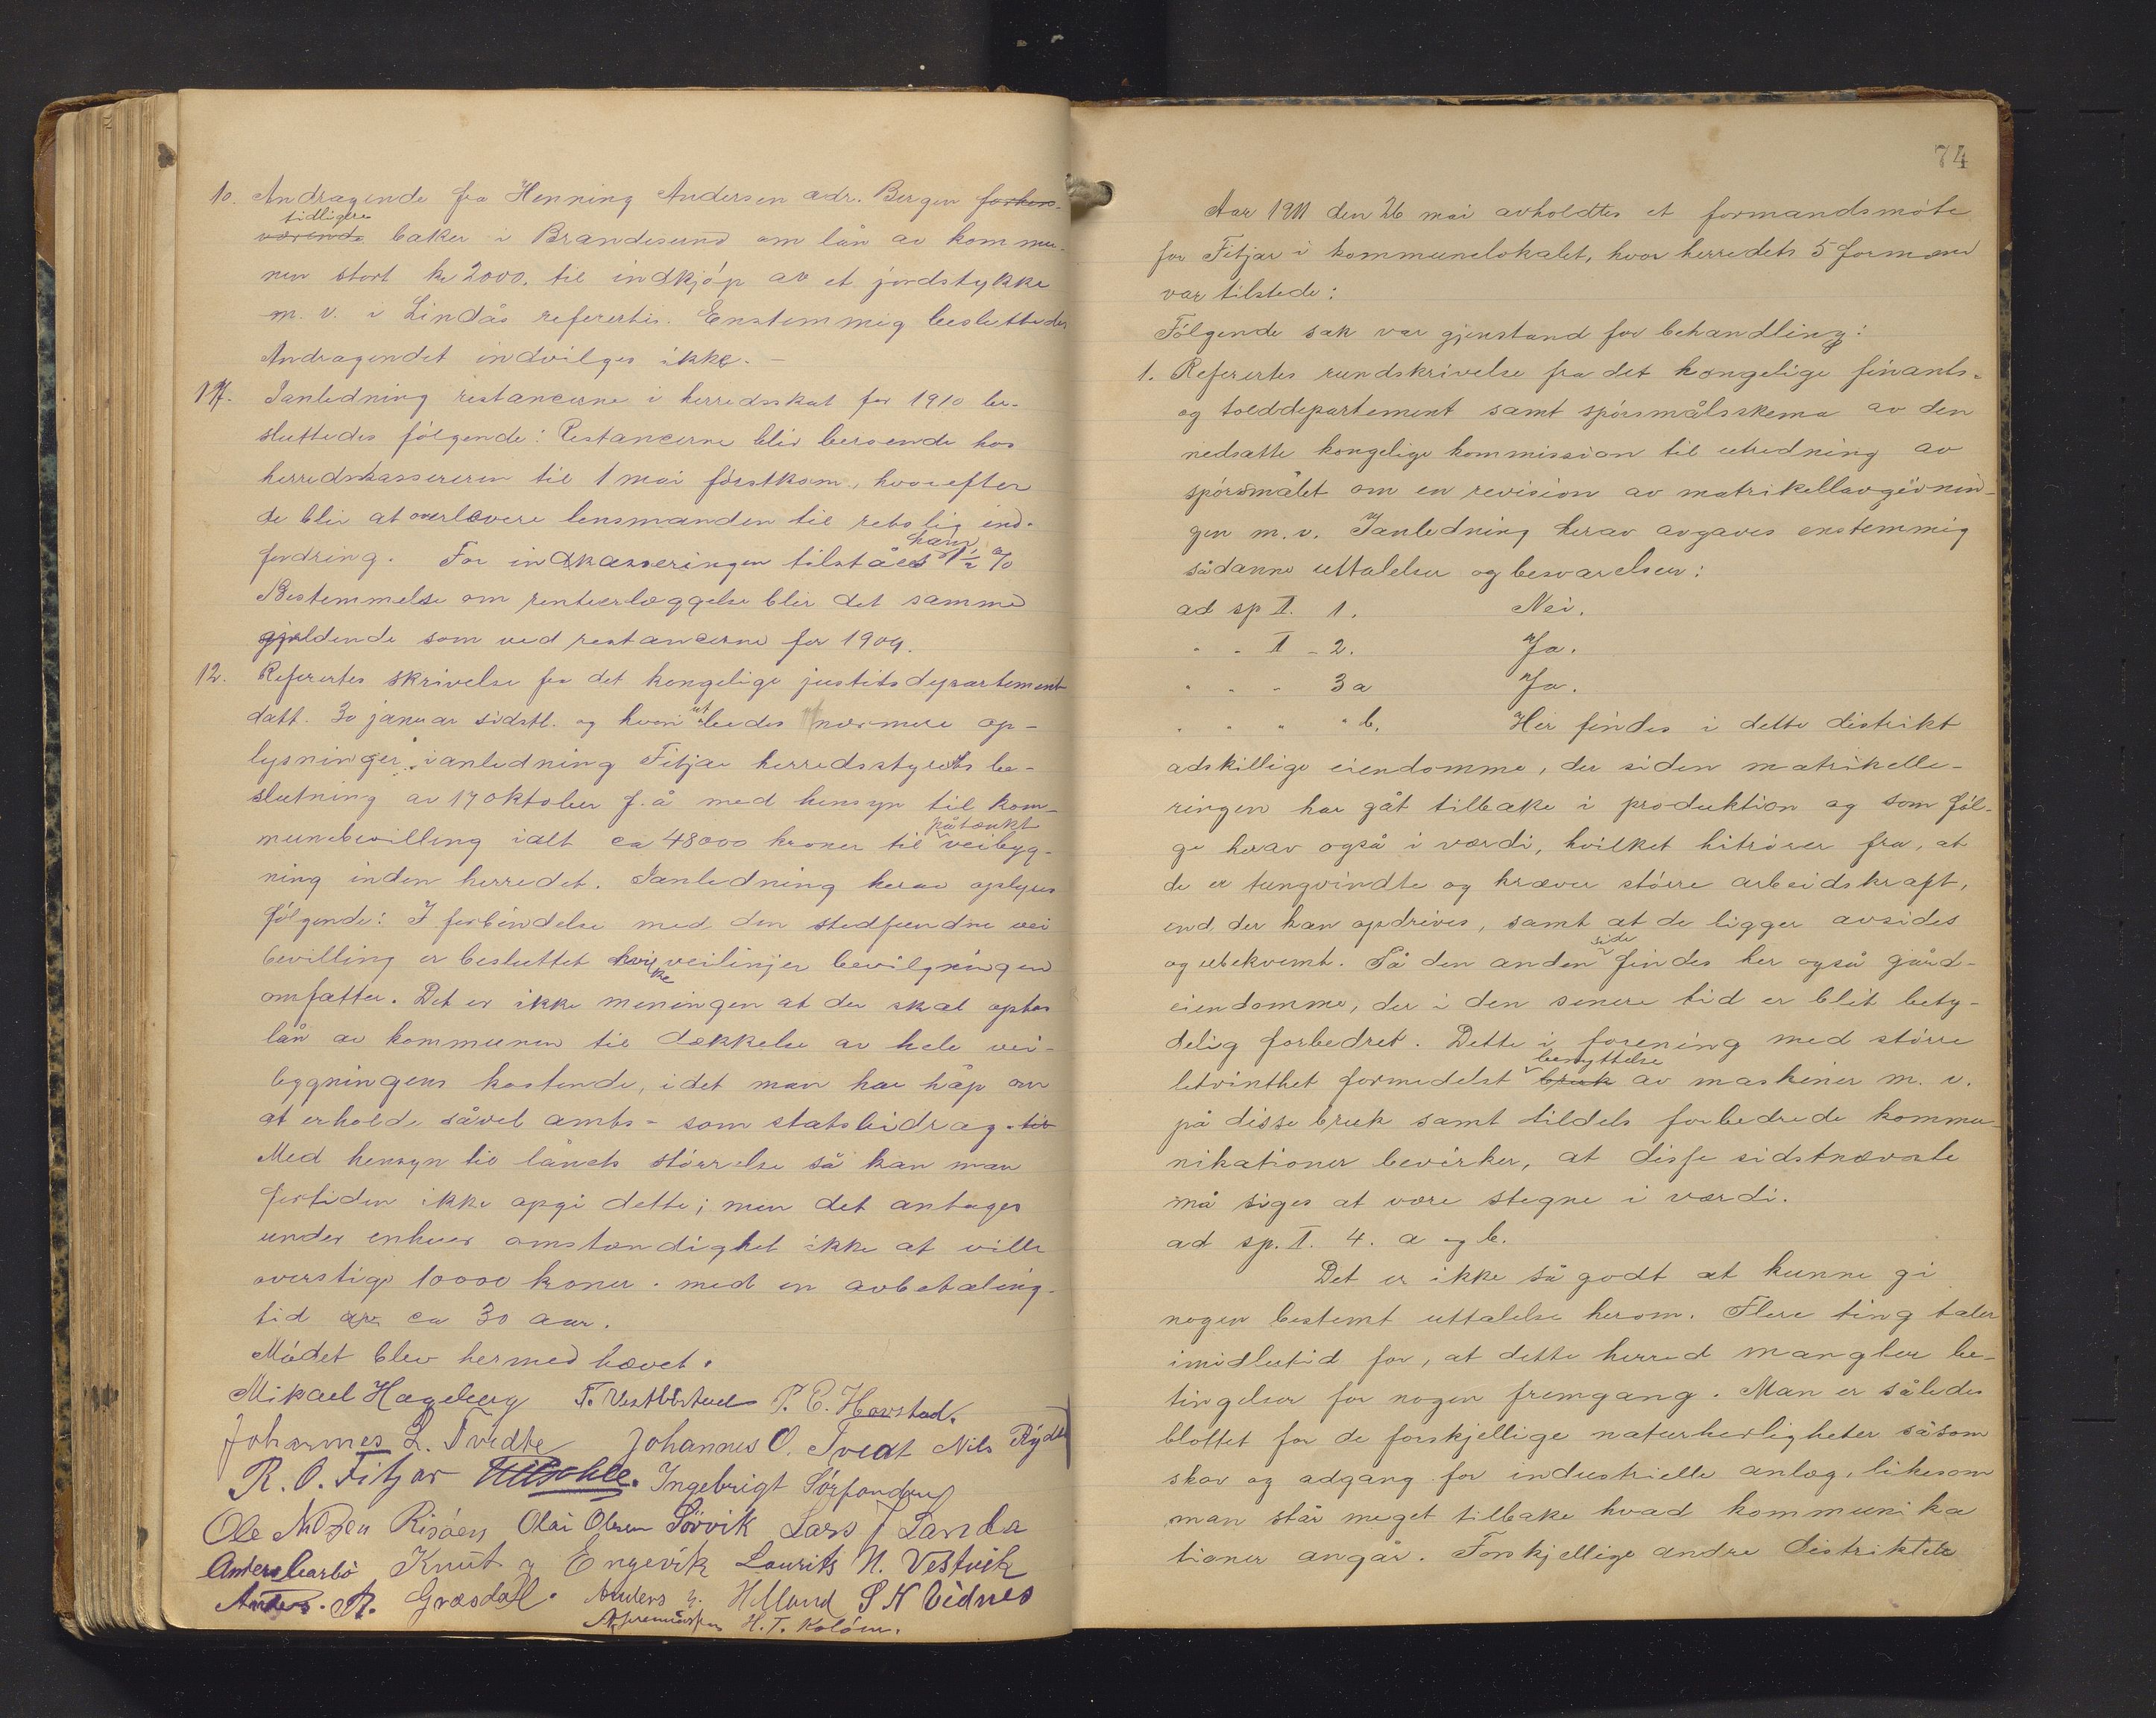 10. Andragende fra Henning Andersen adr. Bergen forhen-
tidligere
værende baker i Brandesund om lån av kommu-
nen stort kr 2000. til indkjøp av et jordstykke
m. v. i Lindås refertes. Enstemmig besluttedes
Andragendet indvilges ikke. –
11. Ianledning restancerne i herredsskat for 1910 be-
sluttedes følgende: Restancerne blir beroende hos
herredskassereren til 1 mai førstkom., hvorefter
de blir at overlevere lensmanden til retslig ind-
fordring. For indkasseringen tilståes ham 1½ %
Bestemmelse om renteerlæggelse blir det samme
gjeldende som ved restancerne for 1909.
12. Refertes skrivelse fra det kongelige justitsdepartement
datt. 30 januar sidstl. og hvori utbedes nærmere op-
lysninger ianledning Fitjar herredsstyrets be-
slutning av 17 oktober f. å med hensyn til kom-
påtænkt
munebevilling ialt ca 48000 kroner til veibyg-
ning inden herredet. Ianledning herav oplyses
følgende: I forbindelse med den stedfundne vei
bevilling er besluttet hvilke veilinjer bevilgningen
omfatter. Det er ikke meningen at der skal optas
lån av kommunen til dækkelse av hele vei-
bygningens kostende, idet man har håp om
at erholde såvel amts- som statsbidrag. til
Med hensyn til lånets størrelse så kan man
fortiden ikke opgi dette; men det antages
under enhver omstændighet ikke at ville
overstige 10000 kroner. med en avbetaling-
tid av ca 30 aar.
Mødet blev hermed hævet.
Mikael Hageberg T. Vestbøstad P. E. Havstad.
Johannes L. Tvedte Johannes O. Tvedt Nils Rydt
R. O. Fitjar Ingebrigt Sørfonden
Ole Nilsen Risøen Olai Olsen Sørvik Lars J Landa
Anders Aarbø Knut Engevik Laurits N. Vestvik
Anders. A. Græsdal. Anders Helland S N Vidnes
H. T. Koløen.
74
Aar 1911 den 26 mai avholdtes et formandsmøte
for Fitjar i kommunelokalet, hvor herredets 5 formænd
var tilstede:
Følgende sak var gjenstand for behandling:
1. Refertes rundskrivelse fra det kongelige finants-
og tolddepartement samt spørsmålsskema av den
nedsatte kongelige kommission til utredning av
spørsmålet om en revision av matrikellovgivnin-
gen m. v. Ianledning herav avgaves enstemmig
sådanne uttalelser og besvarelser:
ad sp I. 1. Nei.
" " I - 2. Ja.
" " " 3 a Ja.
" " " " b. Her findes i dette distrikt
adskillige eiendomme, der siden matrikelle-
ringen har gåt tilbake i produktion og som føl-
ge herav også i værdi, hvilket hitrører fra, at
de er tungvindte og kræver større arbeidskraft,
end der kan opdrives, samt at de ligger avsides
og ubekvemt. På den anden side findes her også gård-
eiendomme, der i den senere tid er blit bety-
delig forbedret. Dette i forening med større
benyttelse
letvinthet formedelst bruk av maskiner m. v.
på disse bruk samt tildels forbedrede kommu-
nikationer bevirker, at disse sidstnævnte
må siges at være stegne i værdi.
ad sp. I. 4. a og b.
Det er ikke så godt at kunne gi
nogen bestemt uttalelse herom. Flere ting taler
imidlertid for, at dette herred mangler be-
tingelser for nogen fremgang. Man er således
blottet for de forskjellige naturherligheter såsom
skov og adgang for industrielle anlæg, likesom
man står meget tilbake hvad kommunika
tioner angår. Forskjellige andre distrikter